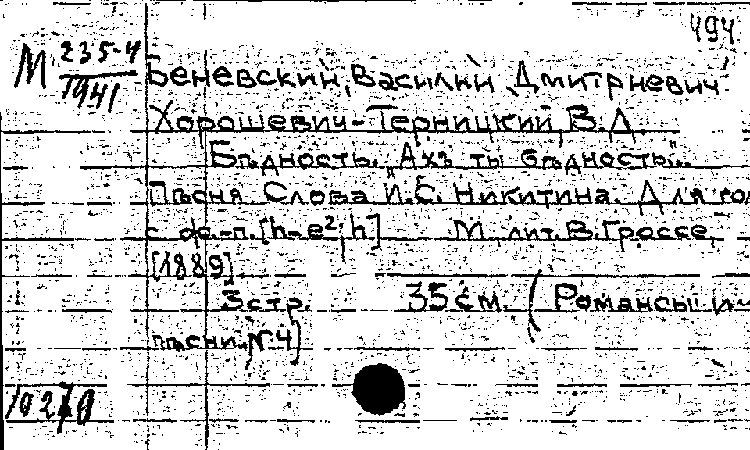 494
М 235-4
1941
Беневский, Василий Дмитриевич
Хорошевич-Терницкий, В.Д.
Бѣдность. „Ахъ ты бѣдность"..
Пѣсня Слова И.С. Никитина. Для гол
с ф.-п. [h-e²; h] М., лит. В. Гроссе,
[1889].
3 стр. 35 см. (Романсы и
пѣсни. № 4)